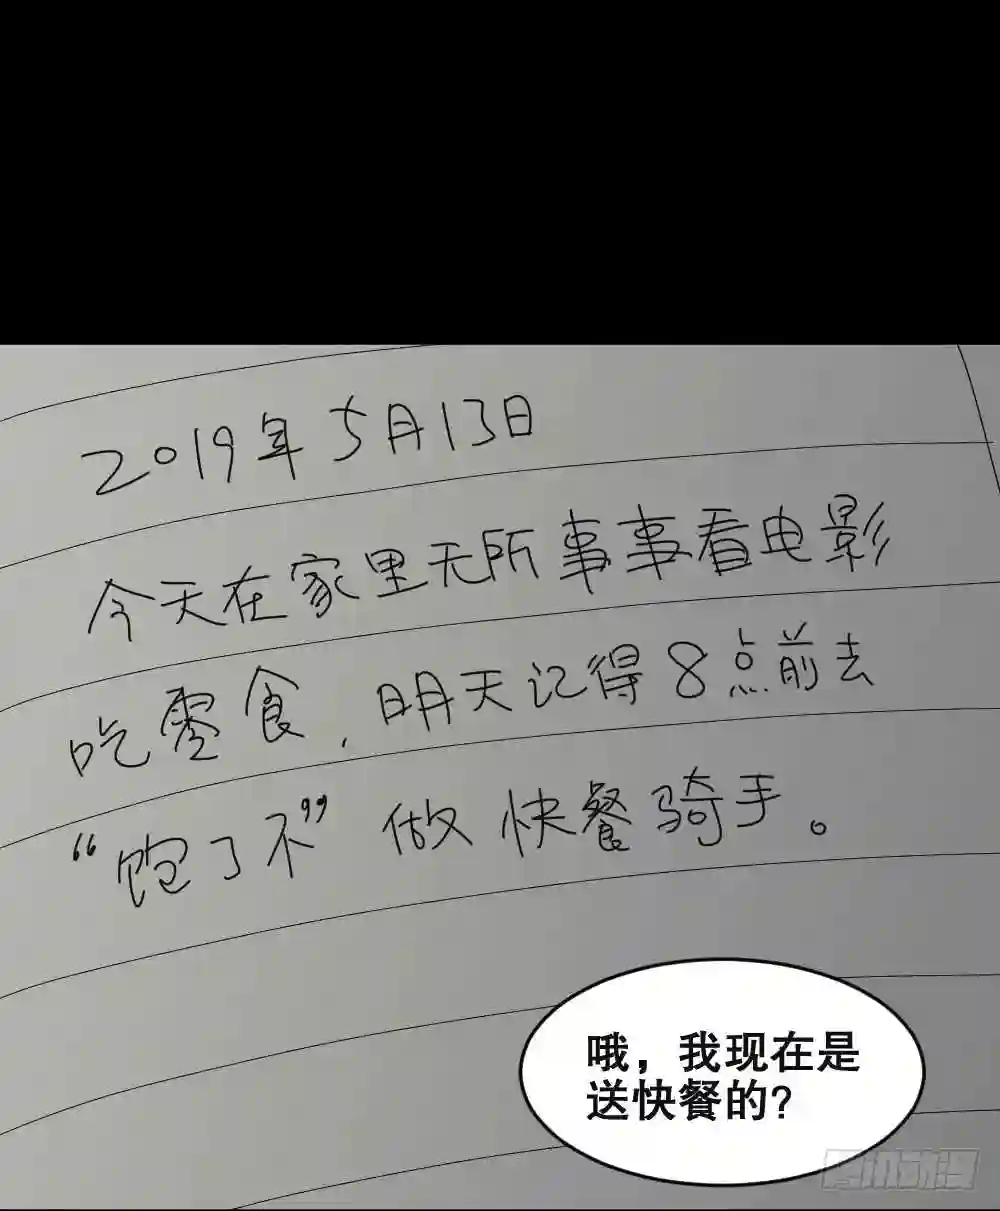 2019年5月13日
今天在家里无所事事看电影
吃零食，明天记得8点前去
“饱了不”做快餐骑手。
哦，我现在是
送快餐的?